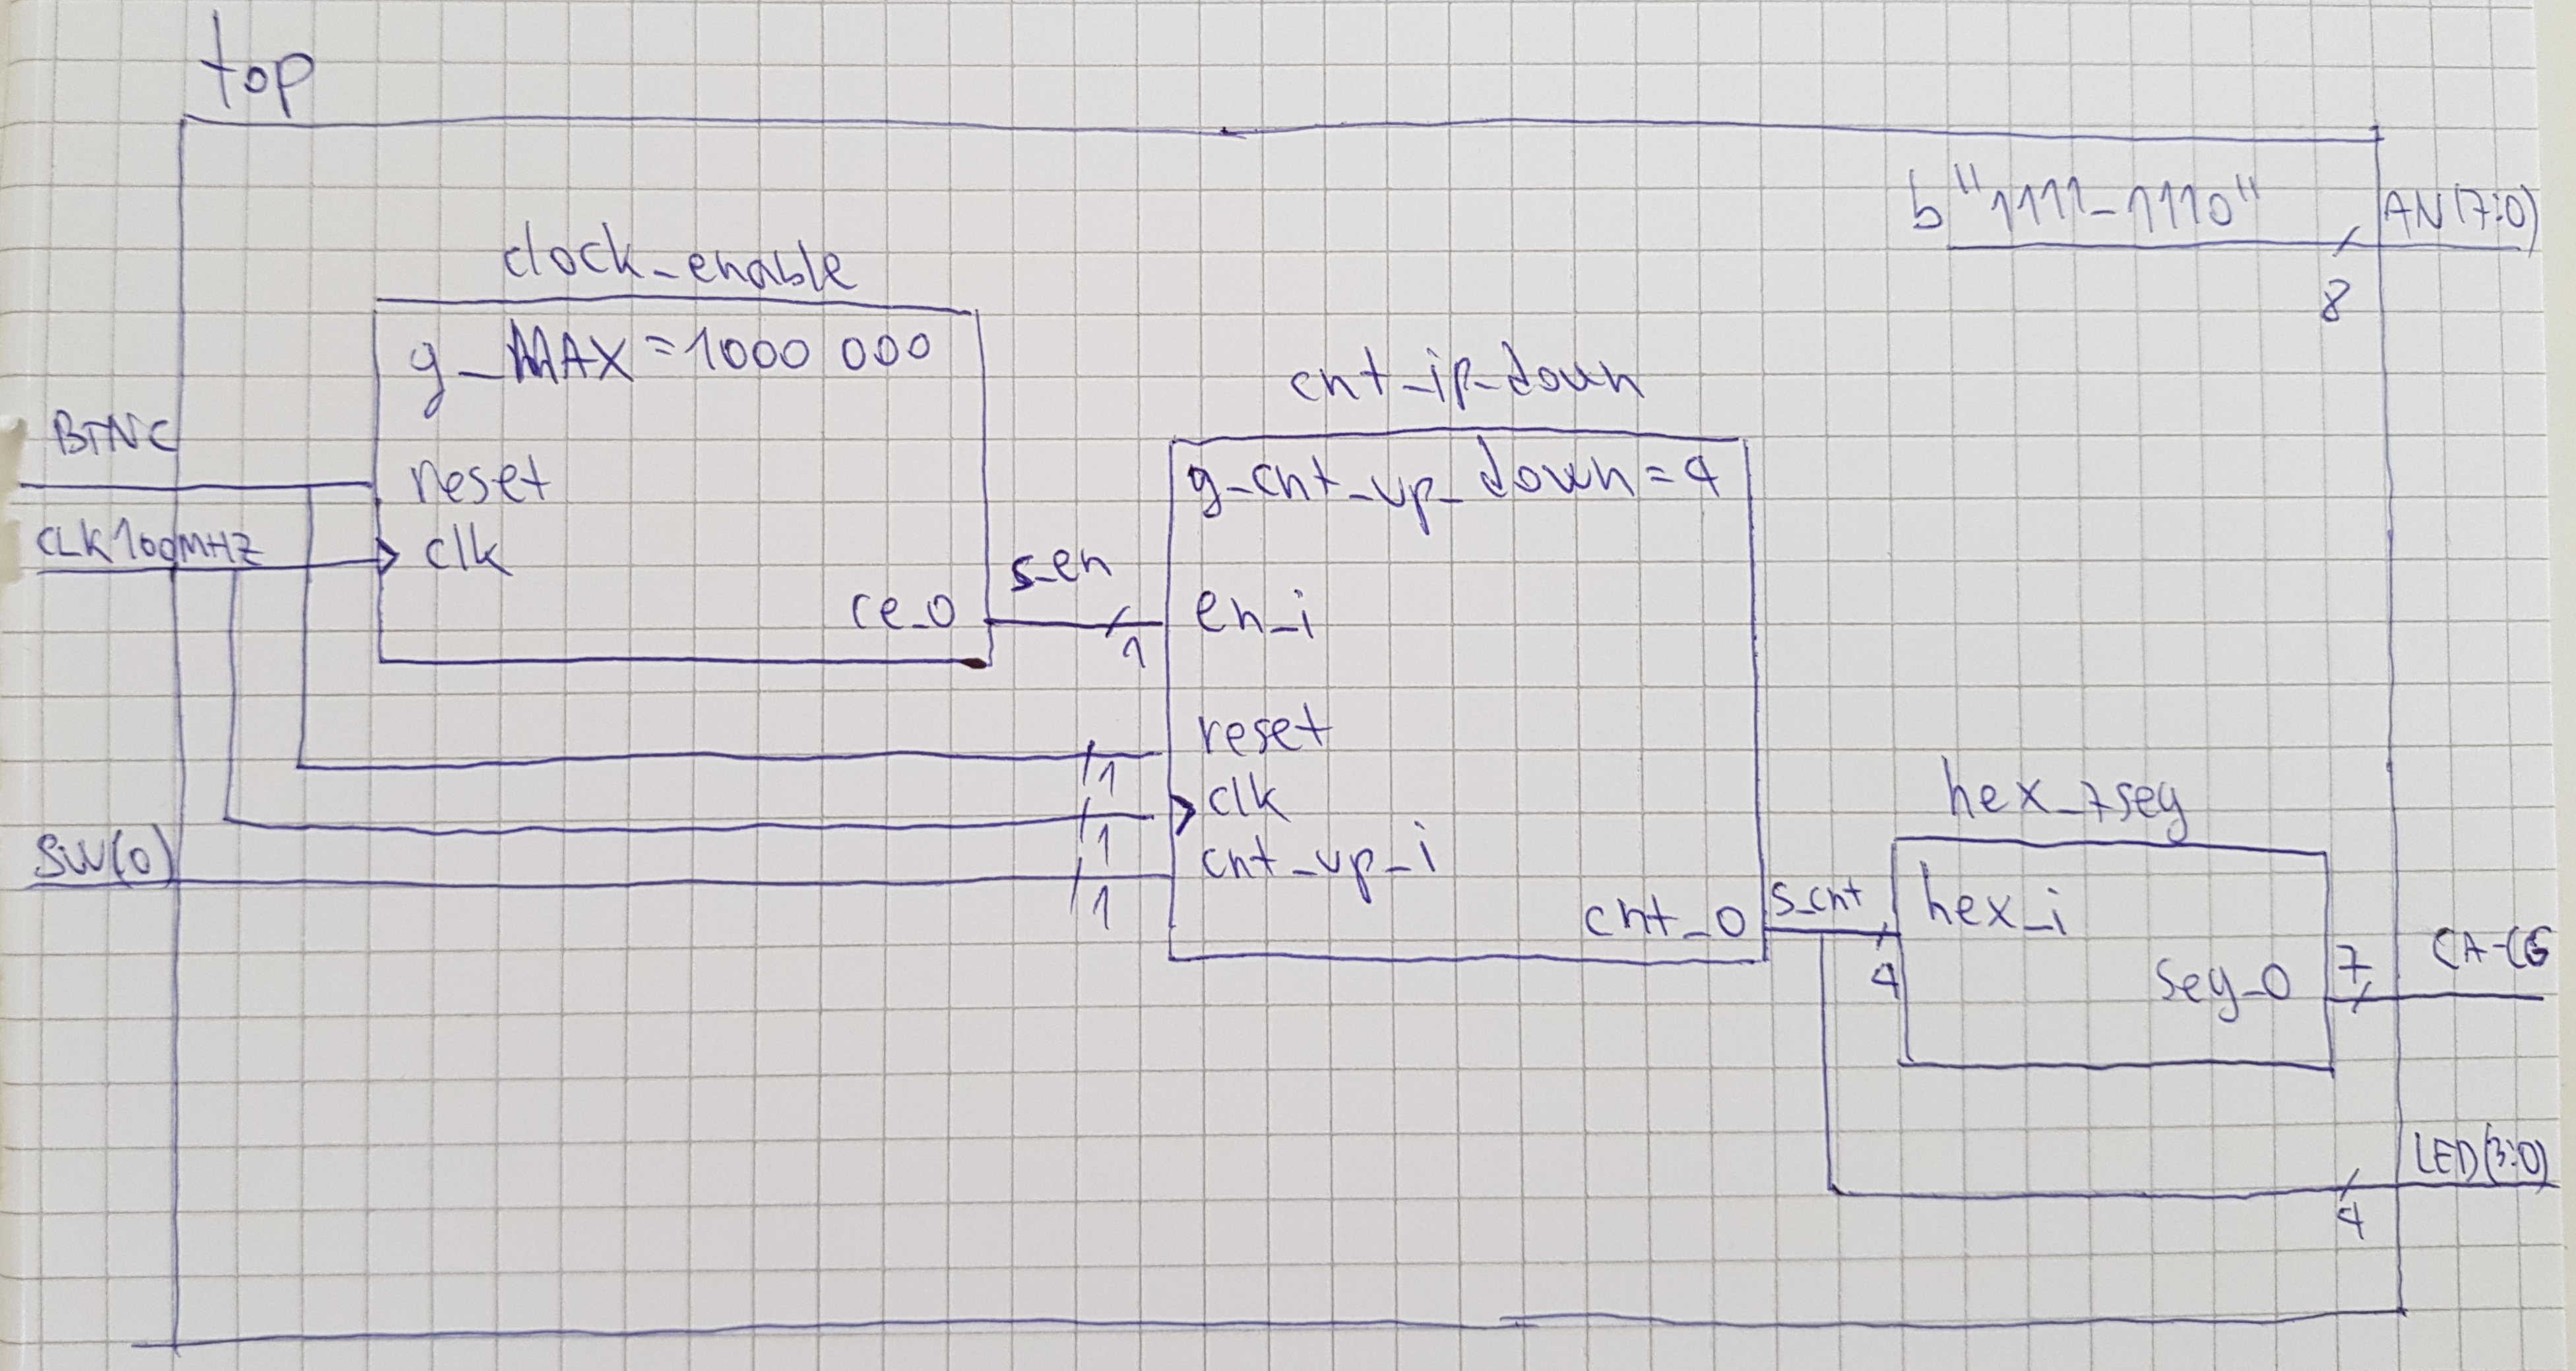 top
b"1111_1110"
AN(7:0)
8
clock_enable
g_MAX=1000 000
BTNC
reset
CLK100MHZ
clk
ce_0
s_en
1
cnt_ip_down
g_cnt_up_down=4
en_i
reset
1
clk
1
SW(0)
cnt_up_i
1
cnt_0
s_cnt
4
hex_7seg
hex_i
seg_0
7
CA-CG
LED(3:0)
4